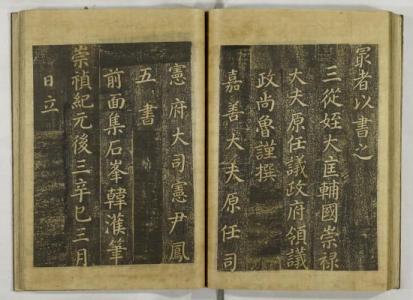 冣者以書之
三從姪大匡輔國崇禄
大夫原任議政府領議
政尚魯謹撰
嘉善大夫原任司
憲府大司憲尹鳳
五書
前面集石峯韓濩筆
崇禎紀元後三辛巳三月
日立